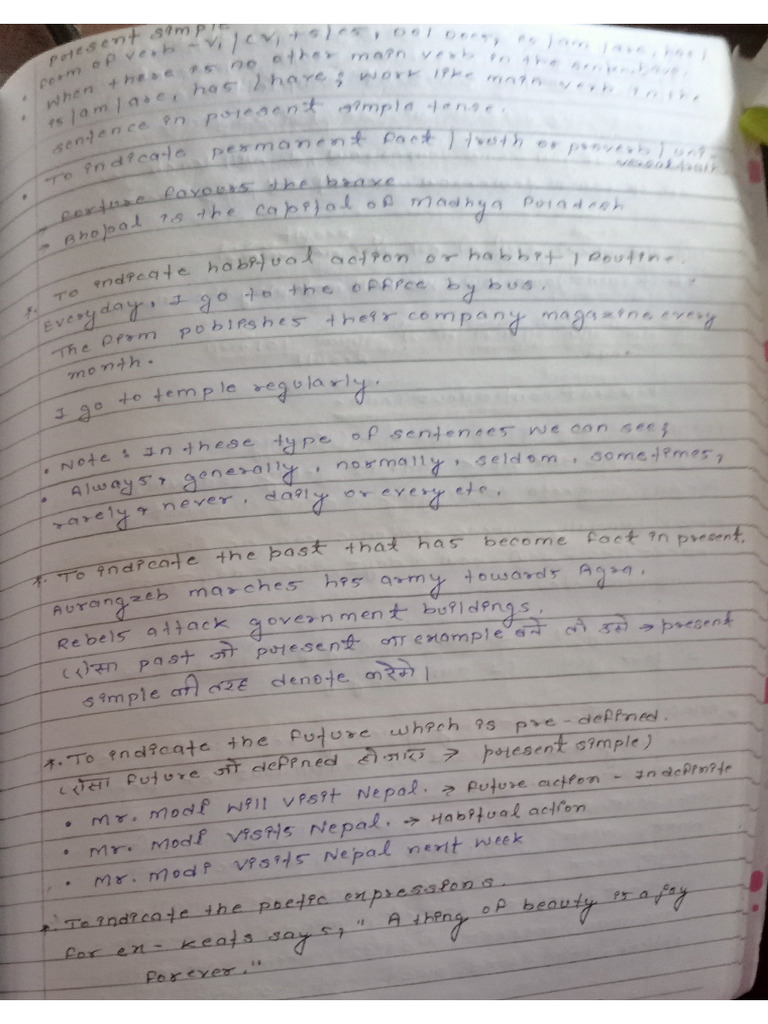 Present simple
Form of verb - V1 / (V1 + s/es, Do/Does, is/am/are, has/
• When there is no other main verb in the sentence,
• is/am/are, has/have; work like main verb in the
sentence in present simple tense.
• To indicate permanent fact / truth or proverb / uni-
versal truth
→ Fortune favours the brave
→ Bhopal is the capital of Madhya Pradesh
*. To indicate habitual action or habbit / Routine.
Everyday, I go to the office by bus.
The firm poblishes their company magazine every
month.
I go to temple regularly.
• Note: In these type of sentences we can see;
• Always, generally, normally, seldom, sometimes,
rarely, never, daily or every etc.
*. To indicate the past that has become fact in present.
Aurangzeb marches his army towards Agra.
Rebels attack government buildings.
(ऐसा past जो present का example बने तो उसे → present
simple की तरह denote करेंगे।
*. To indicate the future which is pre-defined.
(ऐसा future जो defined हो जाए → present simple)
• Mr. Modi will visit Nepal. → Future action - Indefinite
• Mr. Modi visits Nepal. → Habitual action
• Mr. Modi visits Nepal next week
*. To indicate the poetic expressions.
for ex - Keats says, " A thing of beauty is a joy
forever."